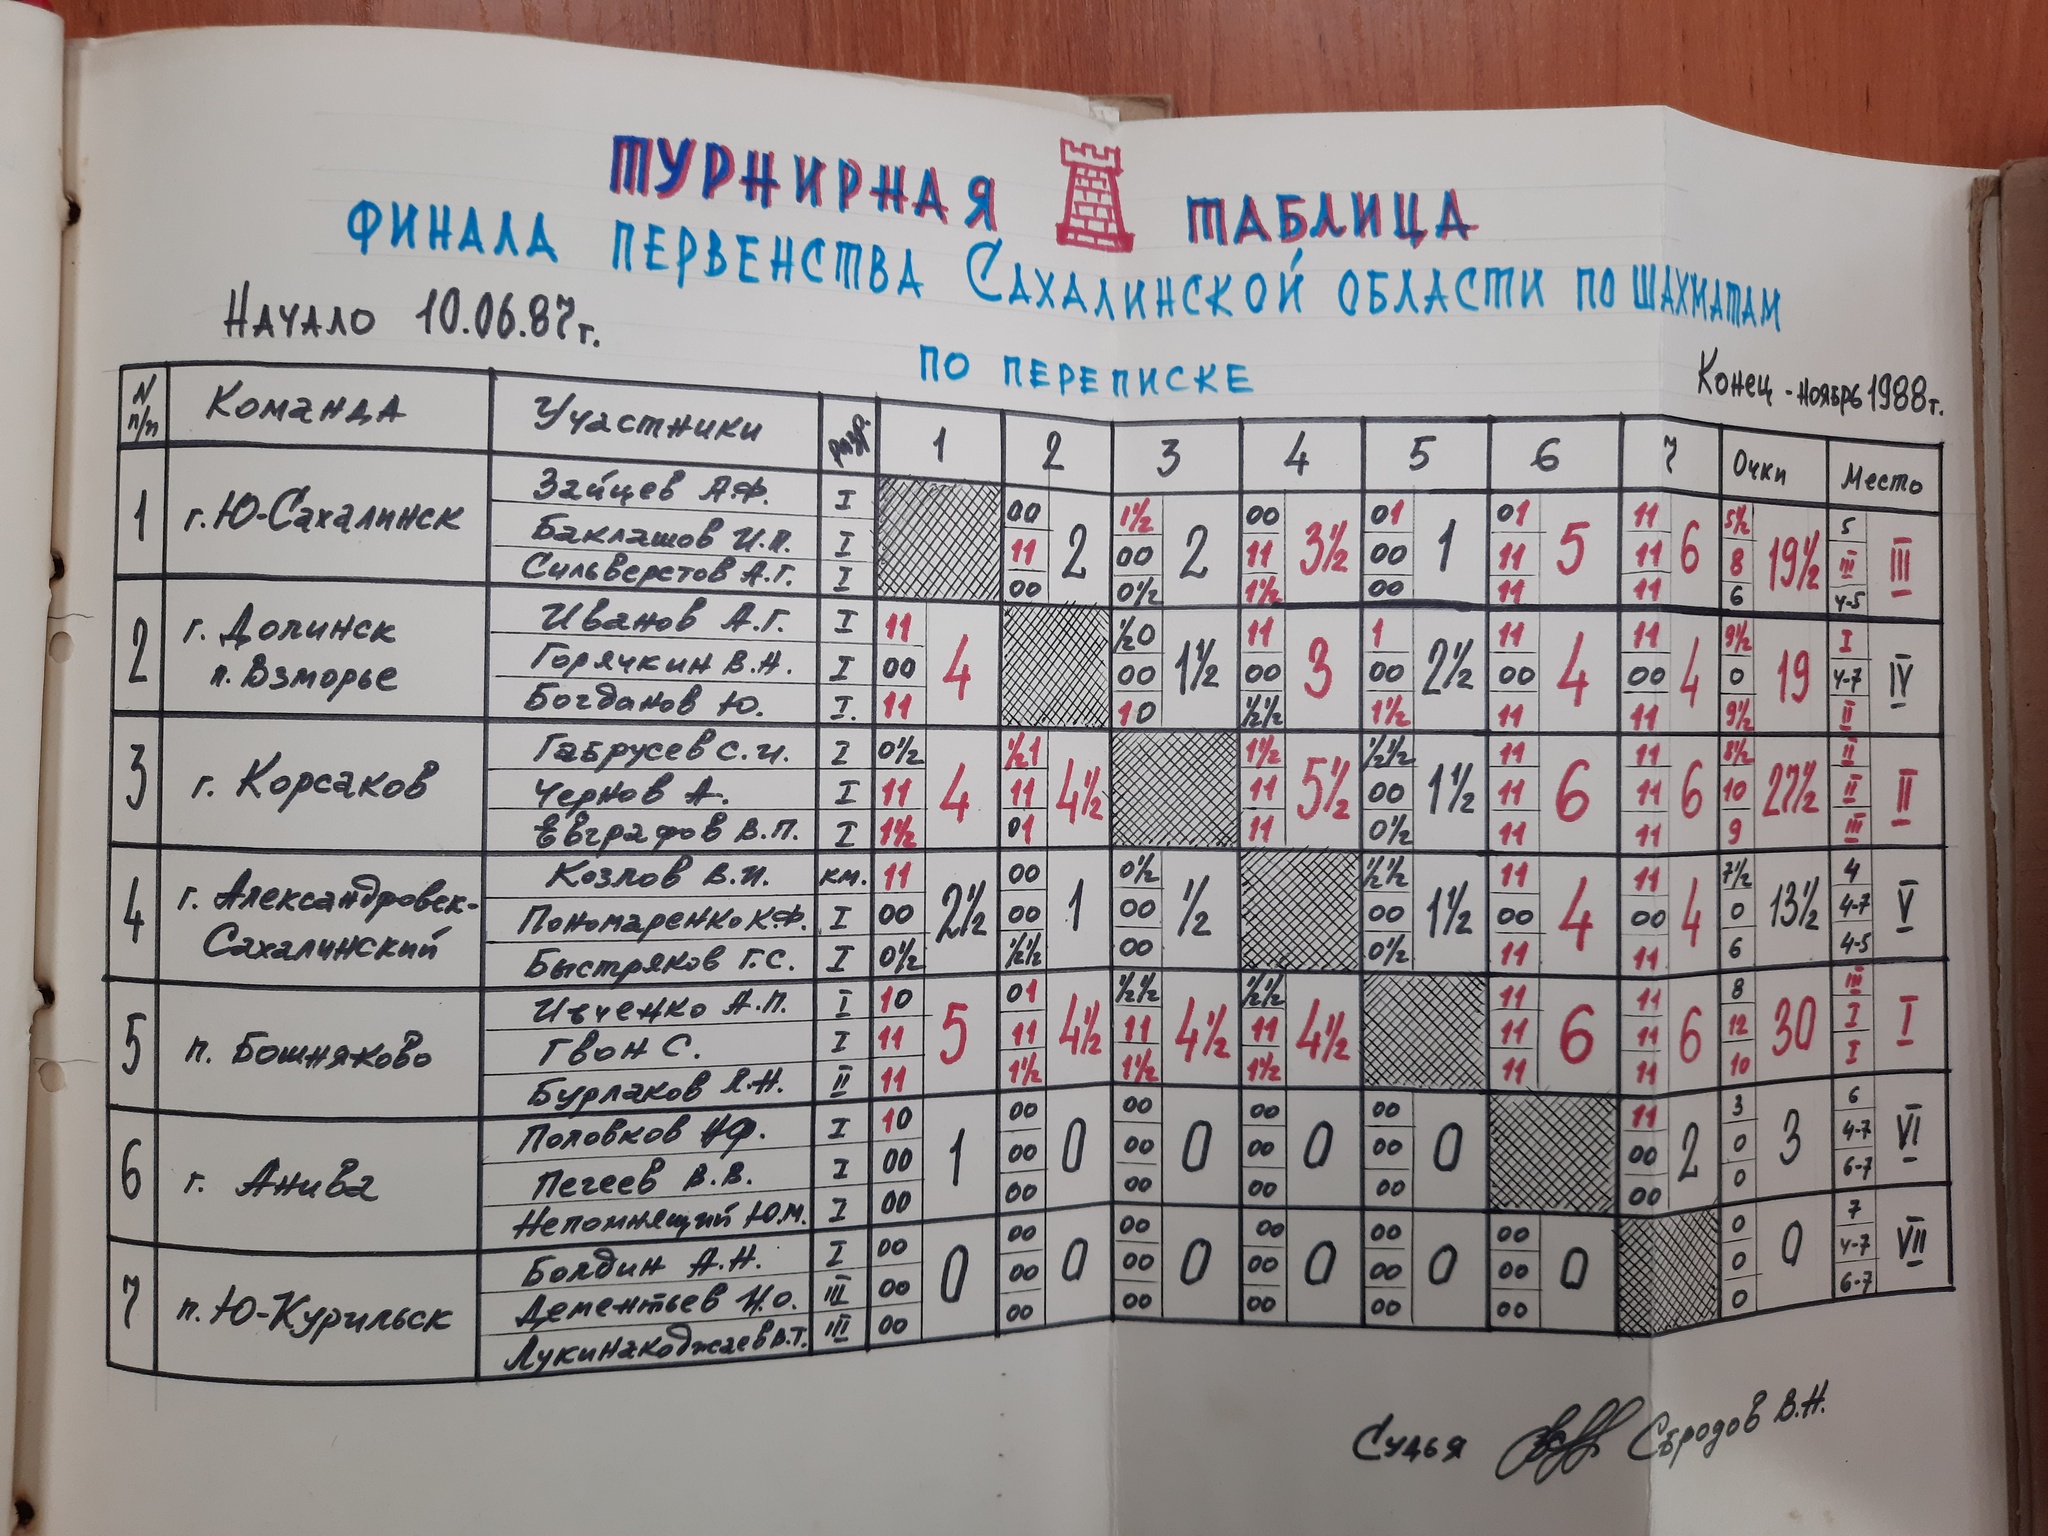 ТУРНИРНАЯ ТАБЛИЦА
ФИНАЛА ПЕРВЕНСТВА САХАЛИНСКОЙ ОБЛАСТИ ПО ШАХМАТАМ
ПО ПЕРЕПИСКЕ
НАЧАЛО 10.06.87г.
Конец - ноябрь 1988г.
N п/п Команда Участники разр. 1 2 3 4 5 6 7 Очки Место
1 г. Ю-Сахалинск 2 2 3½ 1 5 6 19½ III
Зайцев А.Ф. I 00 1½ 00 01 01 11 5½ 5
Баклашов И.П. I 11 00 11 00 11 11 8 III
Сильверстов А.Г. I 00 0½ 1½ 00 11 11 6 4-5
2 г. Долинск п. Взморье 4 1½ 3 2½ 4 4 19 IV
Иванов А.Г. I 11 ½0 11 1 11 11 9½ I
Горячкин В.Н. I 00 00 00 00 00 00 0 4-7
Богданов Ю. I. 11 10 ½½ 1½ 11 11 9½ II
3 г. Корсаков 4 4½ 5½ 1½ 6 6 27½ II
Габрусев С.И. I 0½ ½1 1½ ½½ 11 11 8½ II
Чернов А. I 11 11 11 00 11 11 10 II
Евграфов В.П. I 1½ 01 11 0½ 11 11 9 III
4 г. Александровск-Сахалинский 2½ 1 ½ 1½ 4 4 13½ V
Козлов В.И. км. 11 00 0½ ½½ 11 11 7½ 4
Пономаренко К.Ф. I 00 00 00 00 00 00 0 4-7
Быстряков Г.С. I 0½ ½½ 00 0½ 11 11 6 4-5
5 п. Бошняково 5 4½ 4½ 4½ 6 6 30 I
Ивченко А.П. I 10 01 ½½ ½½ 11 11 8 III
Гвон С. I 11 11 11 11 11 11 12 I
Бурлаков Я.Н. II 11 1½ 1½ 1½ 11 11 10 I
6 г. Анива 1 0 0 0 0 2 3 VI
Половков Н.Ф. I 10 00 00 00 00 11 3 6
Пегеев В.В. I 00 00 00 00 00 00 0 4-7
Непомнящий Ю.М. I 00 00 00 00 00 00 0 6-7
7 п. Ю-Курильск 0 0 0 0 0 0 0 VII
Болдин А.Н. I 00 00 00 00 00 00 0 7
Дементьев И.О. III 00 00 00 00 00 00 0 4-7
Лукинакоджаев В.Т. III 00 00 00 00 00 00 0 6-7
Судья Сбродов В.Н.